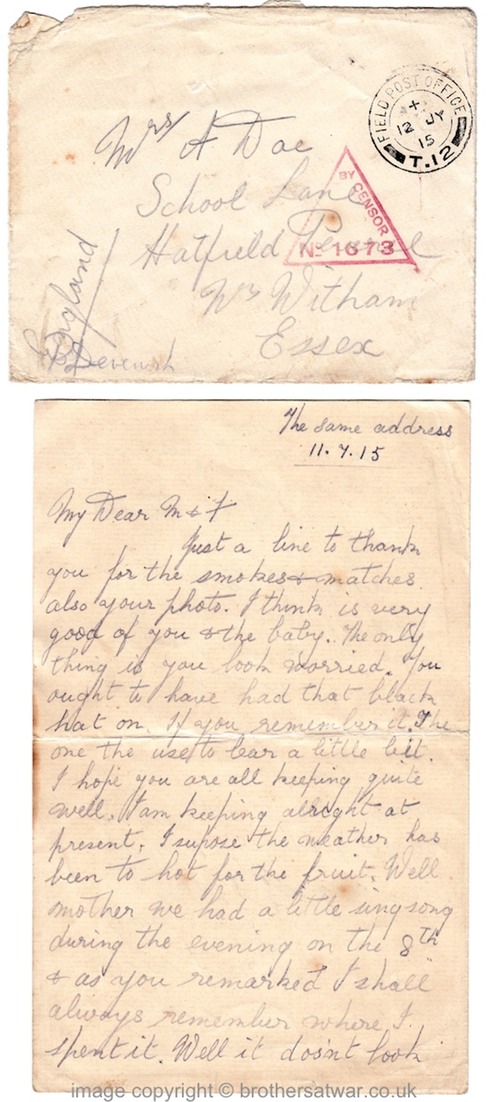 FIELD POST OFFICE
12 JY
15
T.12
BY CENSOR
No 1673
Mrs A Doe
School Lane
Hatfield
Nr Witham
Essex
England
B Devenish
The same address
11.7.15
My Dear M & F
Just a line to thank
you for the smokes & matches.
also your photo. I think is very
good of you & the baby. The only
thing is you look worried. You
ought to have had that black
hat on. If you remember it. The
one the use to lear a little bit.
I hope you are all keeping quite
well. I am keeping alright at
present. I supose the weather has
been to hot for the fruit. Well
mother we had a little singsong
during the evening on the 8th
& as you remarked I shall
always remember where I
spent it. Well it dosnt look
image copyright © brothersatwar.co.uk